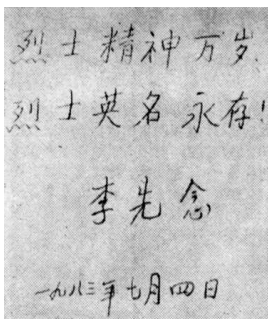 烈士精神万岁!
烈士英名永存!
李先念
一九八三年七月四日